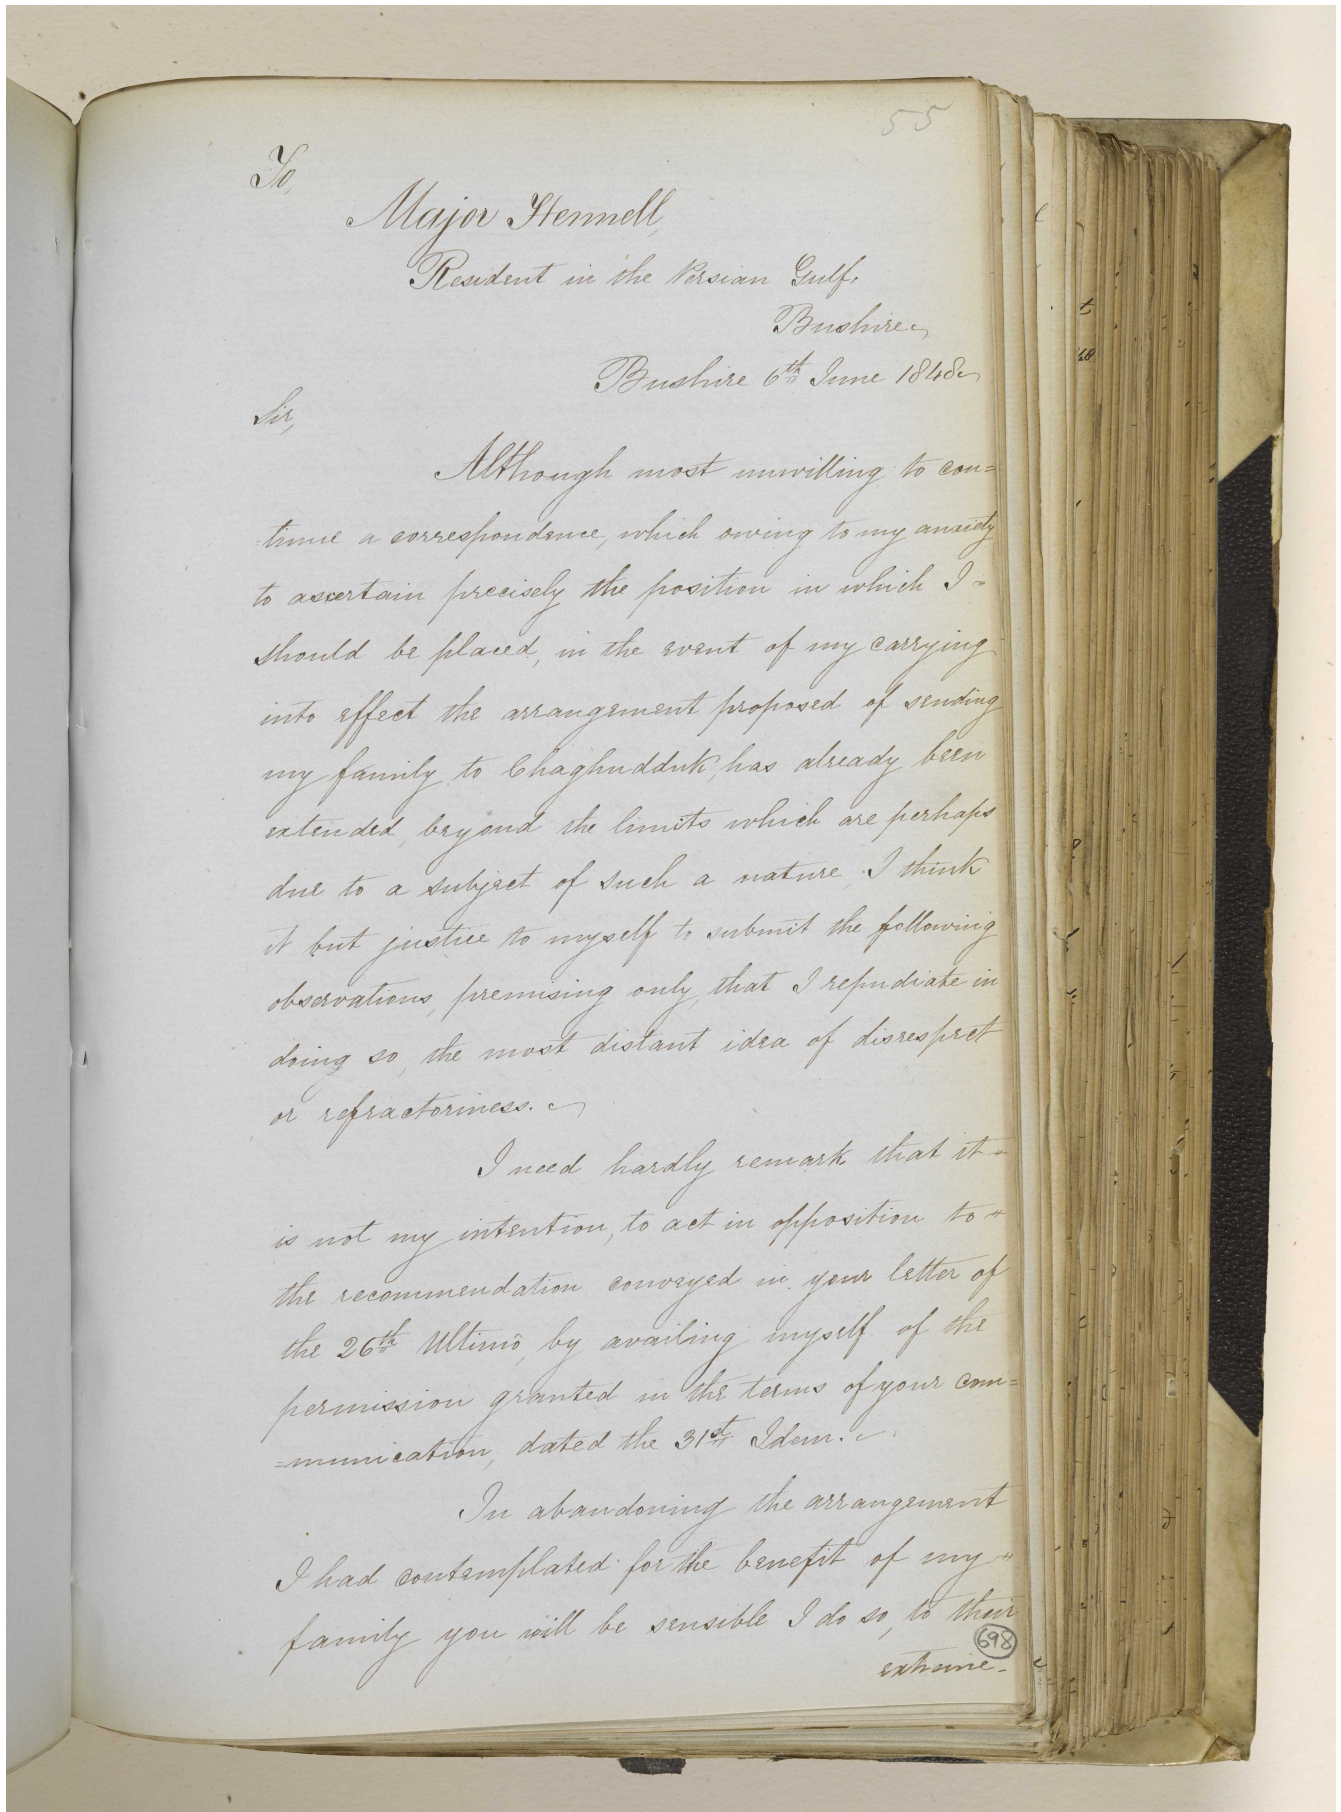 55
To,
Major Hennell,
Resident in the Persian Gulf,
Bushire
Bushire 6th June 1848
Sir,
Although most unwilling to con=
tinue a correspondence, which owing to my anxiety
to ascertain precisely the position in which I
should be placed, in the event of my carrying
into effect the arrangement proposed of sending
my family to Chaghudduk, has already been
extended, beyond the limits which are perhaps
due to a subject of such a nature. I think
it but justice to myself to submit the following
observations, premising only, that I repudiate in
doing so, the most distant idea of disrespect
or refractoriness.
I need hardly remark that it
is not my intention, to act in opposition to
the recommendation conveyed in your letter of
the 26th Ultimo, by availing myself of the
permission granted in the terms of your com=
=munication, dated the 31st Idem.
In abandoning the arrangement
I had contemplated for the benefit of my
family you will be sensible I do so, to their
698
extreme